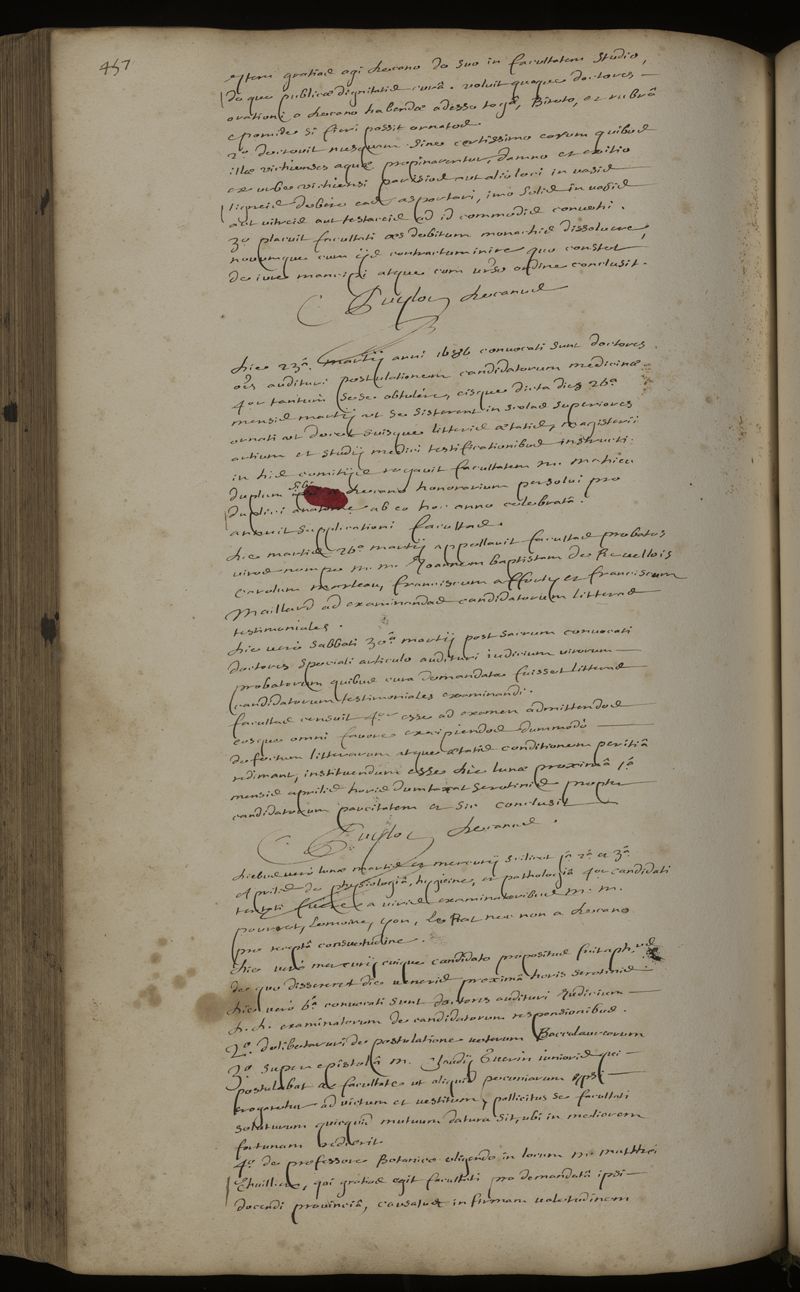 457
item gratias agi decano de suo in facultatem studio,
deque publicae dignitatis curâ. voluit quoque doctores
orationi a decano habendae adesse togâ, Bireto, et rubrâ
epomide si fieri possit ornatos.
2° decrevit nusquam sine certissimo eorum quibus
illae vichienses aquae propinarentur, damno et exitio
ex urbe vichiensi parisios aut alio loci in vasis
ligneis debere eas asportari, imo solis in vasis
aut vitreis aut testaceis ad id commodis convehi.
3° placuit facultati aes debitum monachis dissolvere,
novumque cum ijs contractum inire quo constet
de iure mancipi atque cum verso ordine conclusit.
Puylon decanus
die 23ª. martij anni 1686 convocati sunt doctores
oes audituri postulationem candidatorum medicinae
4or tantum sese obtulere, eisque dicta dies 26ª
mensis martij ut se sisterent in scolas superiores
ornati ut decet suisque litteris aetatis, magisterii
artium et studij medici testificationibus instructi.
in his comitijs rogavit facultatem m. mathieu
duplum sibi decano honorarium persolvi pro
duplici anatome ab eo hoc anno celebratâ.
annuit supplicationi facultas.
die martis 26ª martij appellavit facultas probatos
viros nempe m. m. Joannem baptistam de Revellois
Carolum merleau, franciscum afforty et franciscum
Maillard ad examinandas candidatorum litteras
testimoniales.
die vero sabbati 30ª martij post sacrum convocati
doctores speciali articulo audituri iudicium virorum
probatorum quibus cura demandata fuisset litteras
candidatorum testimoniales examinandi.
facultas censuit 4or esse ad examen admittendos
eosque omni favore excipiendos dummodo
defectum litterarum atque aetatis conditionem peritiâ
redimant, instituendum esse die lunae proximâ 1ª
mensis aprilis horis dumtaxat serotinis propter
candidatorum paucitatem et sic conclusit
Puylon decanus.
diebus vero lunae martis et mercurij scilicet 1ª 2ª et 3ª
Aprilis de physiologiâ, hygieine, et pathologiâ 4or candidati
tentati fuere a viris examinatoribus m. m.
pourret, Lemoine, yon, le Rat nec non a decano
pro receptâ consuetudine.
die vero mercurij cuique candidato propositus fuit aph.
de quo dissereret die veneris proximâ horis serotinis.
die vero 6ª convocati sunt doctores audituri Judicium
d. d. examinatorum de candidatorum responsionibus.
2° deliberaturi de postulatione veterum Baccalaureorum
3° super epistolâ m. Claudij Guerin iunioris qui
postulabat a facultate ut aliquid pecuniarum ipsi
erogaretur ad victum et vestitum, pollicitus se facultati
soluturum quicquid mutuum datura sit, ubi in meliorem
fortunam redierit.
4° de professore Botanico eligendo in locum m. matthaei
Thuillier, qui gratias egit facultati pro demandatâ ipsi
docendi provinciâ, causatus infirmam valetudinem